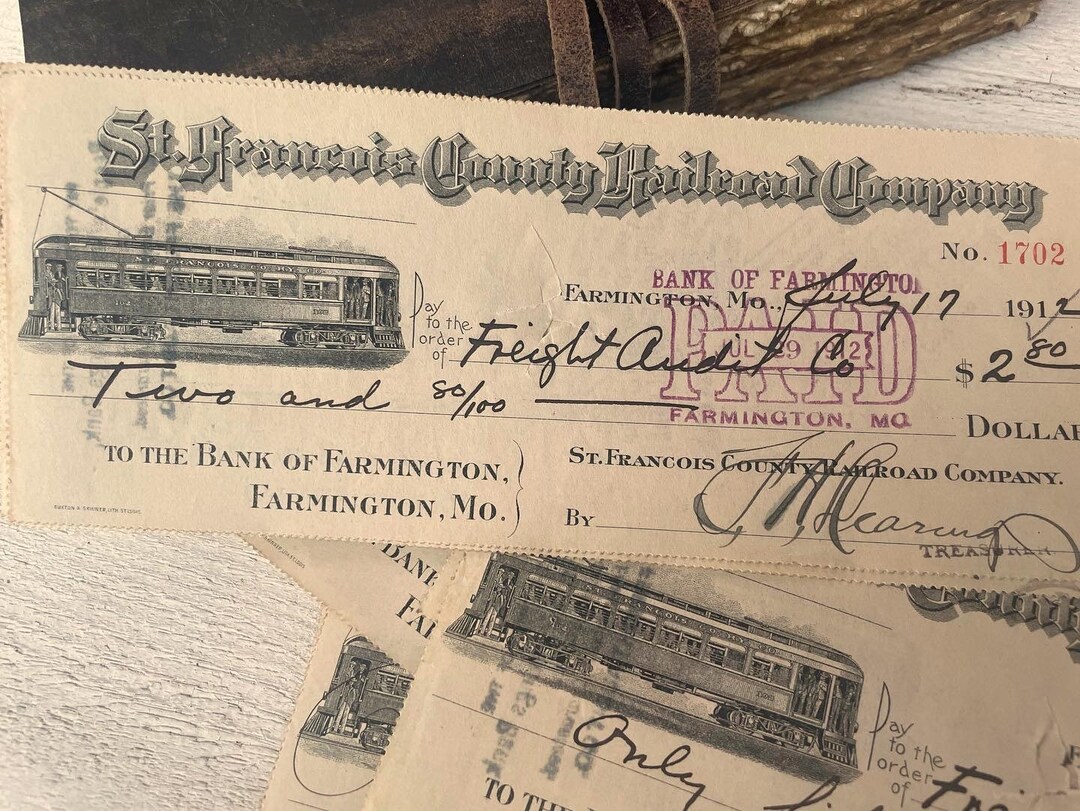 St. Francois County Railroad Company
No. 1702
BANK OF FARMINGTO
Farmington, Mo., July 17 1912
PAID
JUL 29 1912
FARMINGTON, MO
Pay
to the
order
of
Freight Audit Co
$ 2 80
Two and 80/100
DOLLAR
TO THE BANK OF FARMINGTON,
FARMINGTON, MO.
ST. FRANCOIS COUNTY RAILROAD COMPANY.
By
TREASURER
BANK
FA
FRANCOIS CO. RY. CO.
County
Pay
to the
order
of
Only
TO TH